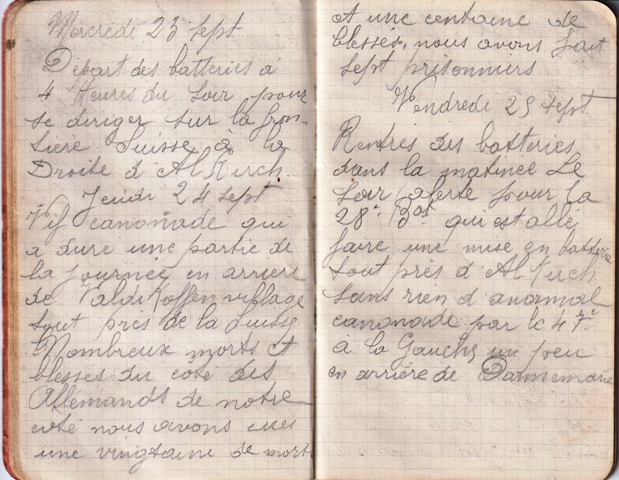 Mercredi 23 sept
Départ des batteries à
4 Heures du soir pour
se diriger sur la fron-
tiere Suisse à la
Droite d'AltKirch.
Jeudi 24 sept
Vif canonade qui
a dure une partie de
la journée en arriere
de ValdiKoffen village
tout près de la Suisse
Nombreux morts et
blesses du côté des
Allemands de notre
coté nous avons eues
une vingtaine de morts
et une centaine de
blessés, nous avons fait
sept prisonniers
Vendredi 25 sept
Rentrés des batteries
dans la matinée Le
soir alerte pour la
28e Bat qui est allé
faire une mise en batterie
tout près d'AltKirch
sans rien d'anormal
canonade par le 47e
à la Gauche un peu
en arrière de Dannemarie